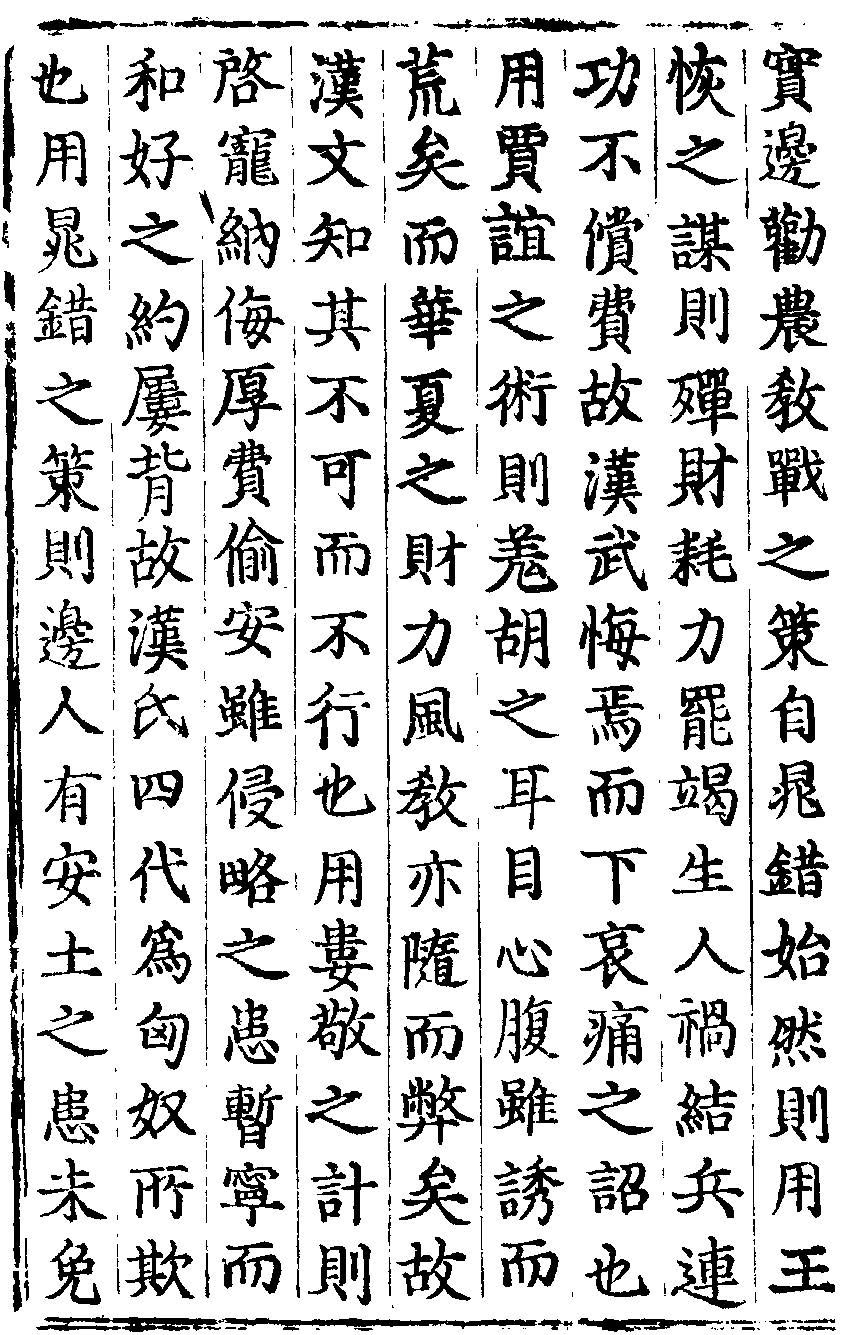 實邊勸農教戰之策自晁錯始然則用王
恢之謀則殫財耗力罷竭生人禍結兵連
功不償費故漢武悔焉而下哀痛之詔也
用賈誼之術則羌胡之耳目心腹雖誘而
荒矣而華夏之財力風教亦隨而弊矣故
漢文知其不可而不行也用婁敬之計則
啓寵納侮厚費偷安雖侵略之患暫寧而
和好之約屢背故漢氏四代為匈奴所欺
也用晁錯之策則邊人有安土之患未免